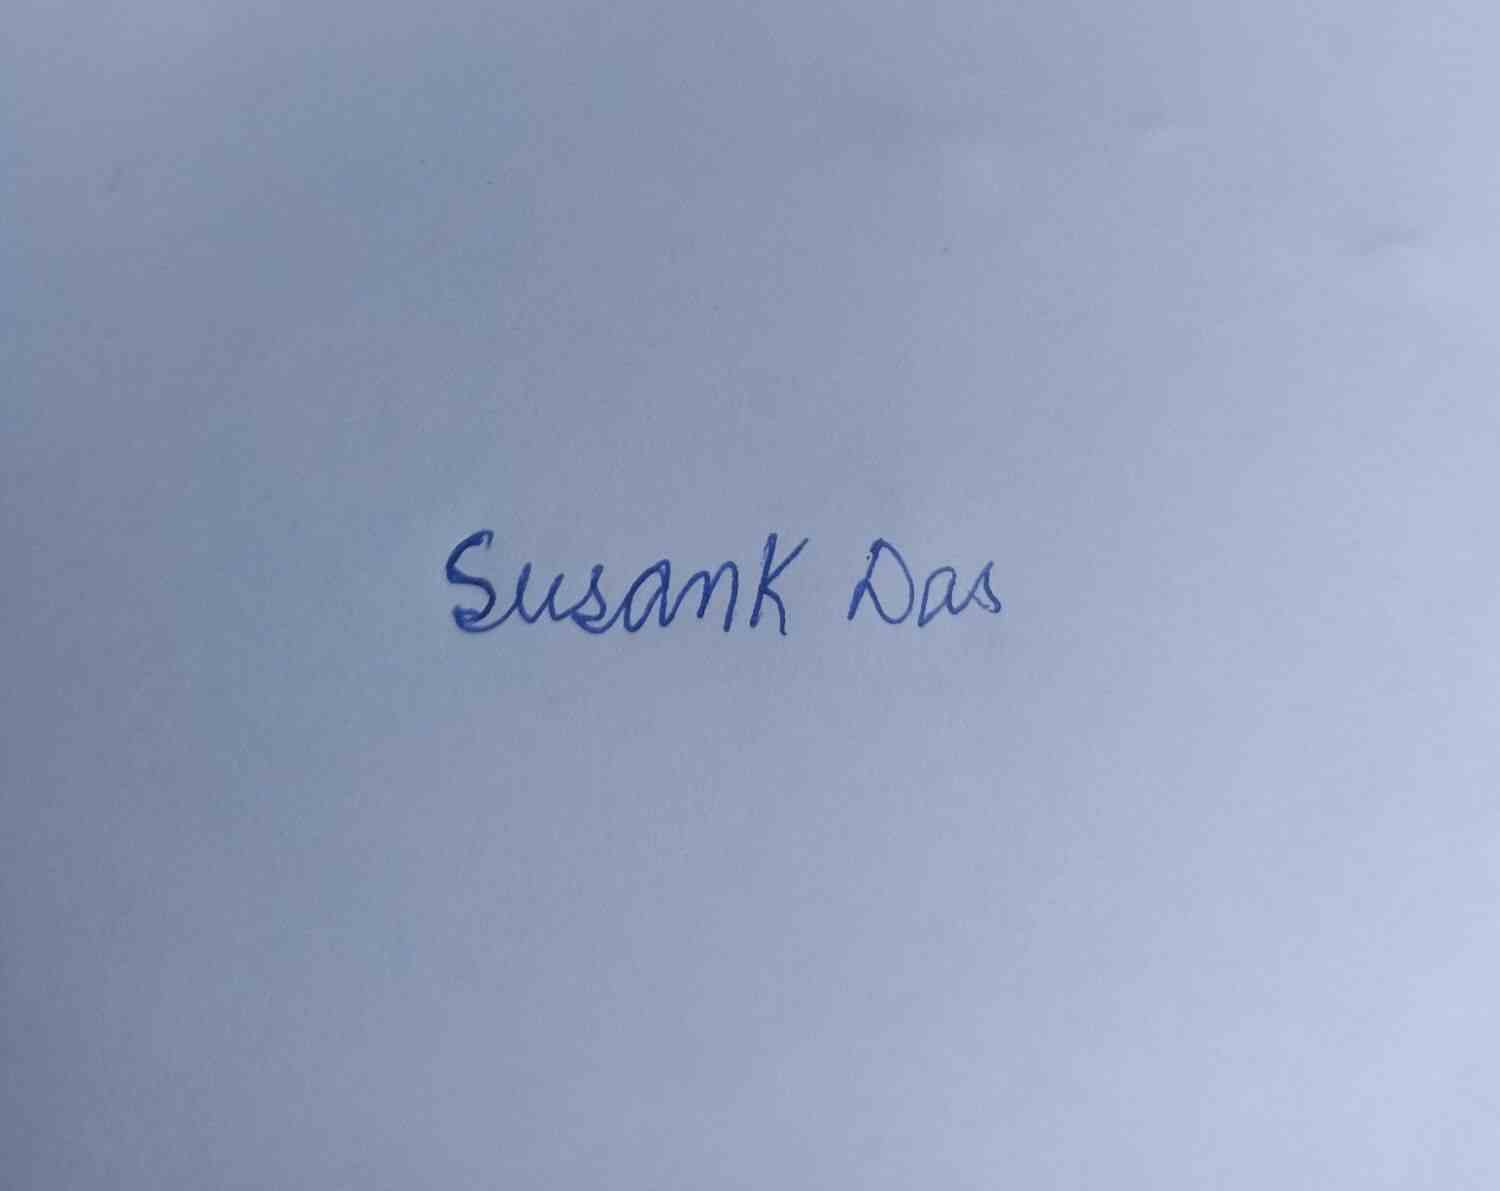 Susank Das